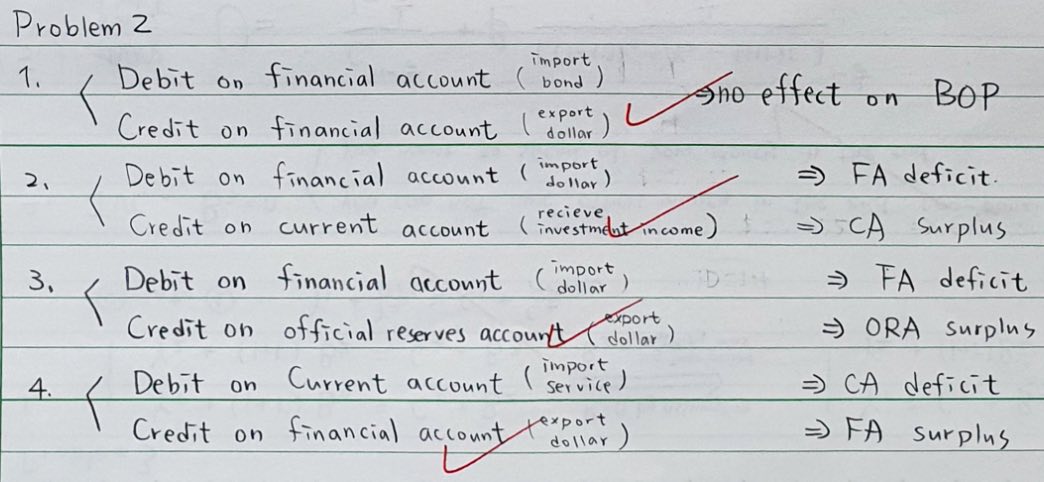 Problem 2
1. Debit on financial account (import bond) ⇒ no effect on BOP
Credit on financial account (export dollar)
2. Debit on financial account (import dollar) ⇒ FA deficit.
Credit on current account (recieve investment income) ⇒ CA surplus
3. Debit on financial account (import dollar) ⇒ FA deficit
Credit on official reserves account (export dollar) ⇒ ORA surplus
4. Debit on Current account (import service) ⇒ CA deficit
Credit on financial account (export dollar) ⇒ FA surplus